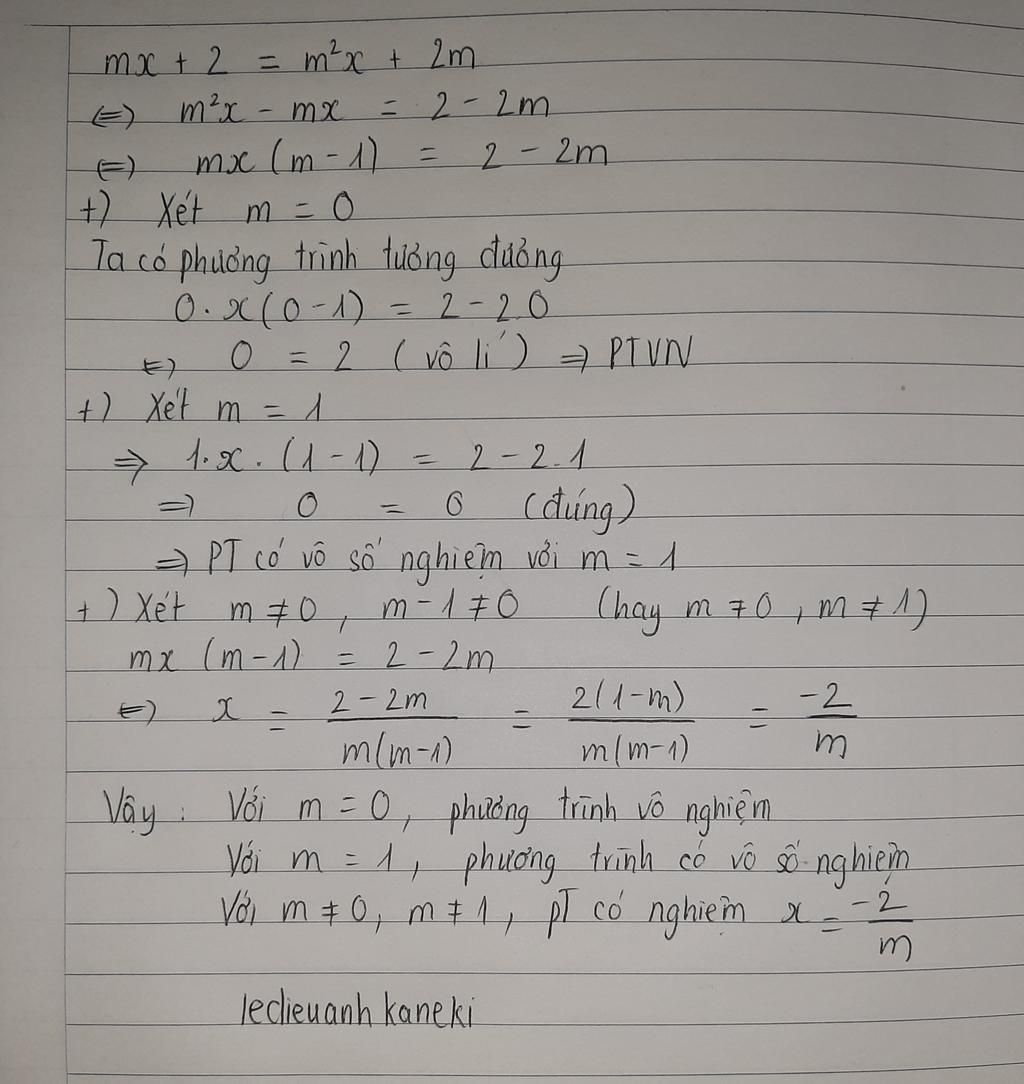 mx + 2 = m²x + 2m
⇔ m²x - mx = 2 - 2m
⇔ mx (m - 1) = 2 - 2m
+) Xét m = 0
Ta có phương trình tương đương
0 . x (0 - 1) = 2 - 2.0
⇔ 0 = 2 (vô lí) ⇒ PTVN
+) Xét m = 1
⇒ 1 . x . (1 - 1) = 2 - 2.1
⇒ 0 = 0 (đúng)
⇒ PT có vô số nghiệm với m = 1
+) Xét m ≠ 0, m - 1 ≠ 0 (hay m ≠ 0, m ≠ 1)
mx (m - 1) = 2 - 2m
⇔ x = (2 - 2m)/(m(m-1)) = 2(1-m)/(m(m-1)) = -2/m
Vậy : Với m = 0, phương trình vô nghiệm
Với m = 1, phương trình có vô số nghiệm
Với m ≠ 0, m ≠ 1, pT có nghiệm x = -2/m
ledieuanh kaneki